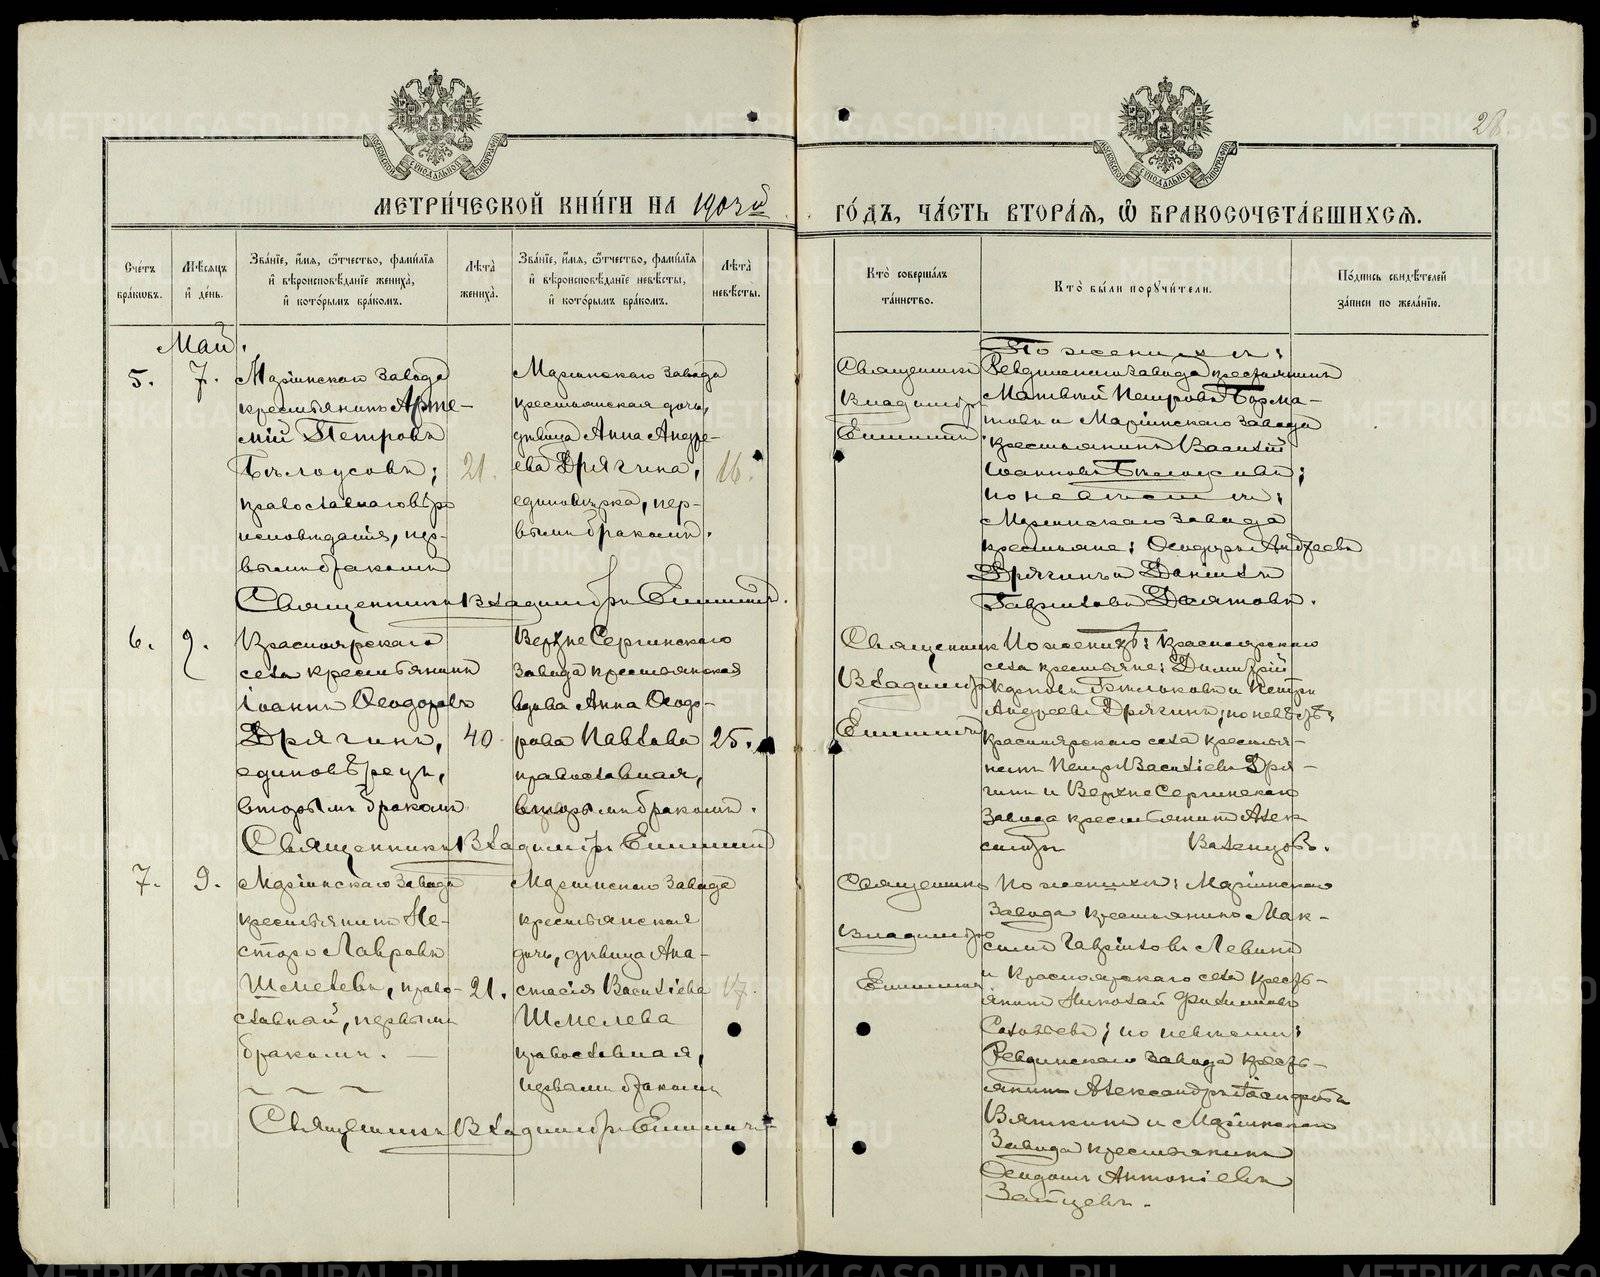 28
МЕТРИ́ЧЕСКОЙ КНИ́ГИ НА 1903й
ГО́ДЪ, ЧА́СТЬ ВТОРА́Я, Ѡ҆ БРАКОСОЧЕТА́ВШИХСЯ.
Сче́тъ бра́кωвъ.
Мѣ́сяцъ и҆ де́нь.
Зва́нїе, и҆́мя, ѻ҆́тчество, фами́лїя
и҆ вѣроисповѣ́данїе жениха̀,
и҆ кото́рымъ бра́комъ.
Лѣ́та жениха̀.
Зва́нїе, и҆́мя, ѻ҆́тчество, фами́лїя
и҆ вѣроисповѣ́данїе невѣ́сты,
и҆ кото́рымъ бра́комъ.
Лѣ́та невѣ́сты.
Кто̀ соверша́лъ
та́инство.
Кто̀ бы́ли порꙋчи́тели.
По́дпись свидѣ́телей
за́писи по жела́нїю.
Май.
5.
7.
Маріинскаго завода
крестьянинъ Арте-
мій Петровъ
Бѣлоусовъ;
православнаго вѣро
исповѣданія, пер-
вымъ бракомъ
21.
Маріинскаго завода
крестьянская дочь,
дѣвица Анна Андре-
ева Дрягина,
единовѣрка, пер-
вымъ бракомъ.
16.
Священникъ
Владиміръ
По женихѣ:
Ревдинскаго завода крестьянинъ
Матвѣй Петровъ Борма-
товъ и Маріинскаго завода
крестьянинъ Василій
Іоанновъ Бѣлоусовъ;
по невѣстѣ:
Маріинскаго завода
крестьяне: Ѳеодоръ Андреевъ
Дрягинъ и Даніилъ
Гавріиловъ Долматовъ.
Священникъ Владиміръ
6.
9.
Красноярскаго
села крестьянинъ
Іоаннъ Ѳеодоровъ
Дрягинъ,
единовѣрецъ,
вторымъ бракомъ
40
Верхне Сергинскаго
завода крестьянская
вдова Анна Ѳеодо-
рова Павлова
православная,
вторымъ бракомъ.
25.
Священникъ
Владиміръ
По женихѣ: Красноярскаго
села крестьяне: Димитрій
Карповъ Бѣльковъ и Петръ
Андреевъ Дрягинъ, по невѣстѣ:
Красноярскаго села крестья-
нинъ Петръ Васильевъ Дря-
гинъ и Верхне Сергинскаго
завода крестьянинъ Алек
сандръ Валенцовъ.
Священникъ Владиміръ
7.
9.
Маріинскаго завода
крестьянинъ Не-
сторъ Лавровъ
Шмелевъ, право-
славный, первымъ
бракомъ.
21.
Маріинскаго завода
крестьянская
дочь, дѣвица Ана-
стасія Васильева
Шмелева
православная,
первымъ бракомъ
17.
Священникъ
Владиміръ
По женихѣ: Маріинскаго
завода крестьянинъ Мак-
симъ Гавріиловъ Левинъ
и Красноярскаго села кресть-
янинъ Николай Филипповъ
Соловьевъ; по невѣстѣ:
Ревдинскаго завода кресть-
янинъ Александръ
Вяткинъ и Маріинскаго
завода крестьянинъ
Антоніевъ
Зайцевъ.
Священникъ Владиміръ
METRIKI.GASO-URAL.RU